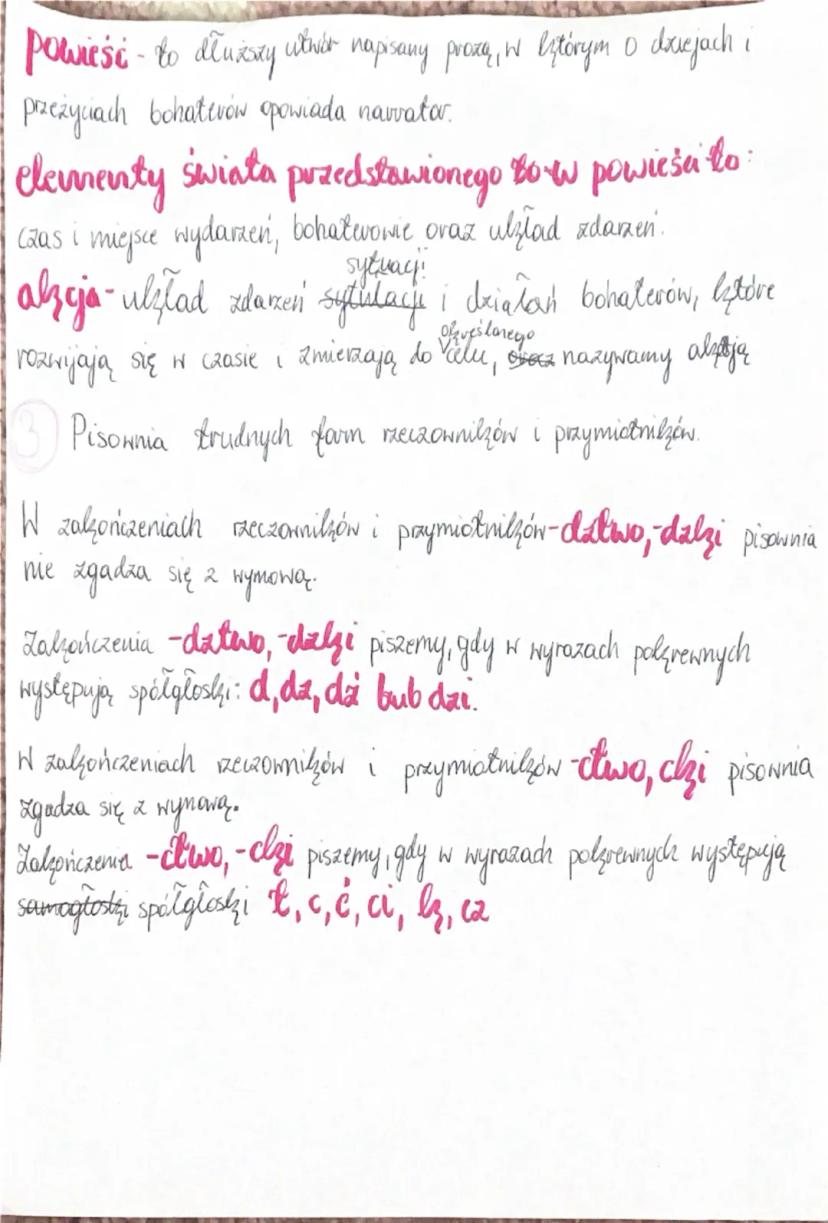 powieść - to dłuższy utwór napisany prozą, w którym o dziejach i
przeżyciach bohaterów opowiada narrator.
elementy świata przedstawionego to w powieści to:
czas i miejsce wydarzeń, bohaterowie oraz układ zdarzeń.
sytuacji
akcja - układ zdarzeń sytulacji i działań bohaterów, które
określonego
rozwijają się w czasie i zmierzają do celu, nazywamy akcją
3 Pisownia trudnych form rzeczowników i przymiotników.
W zakończeniach rzeczowników i przymiotników -dztwo, -dzki pisownia
nie zgadza się z wymową.
Zakończenia -dztwo, -dzki piszemy, gdy w wyrazach pokrewnych
występują spółgłoski: d, dz, dź bub dzi.
W zakończeniach rzeczowników i przymiotników -ctwo, cki pisownia
zgadza się z wymową.
Zakończenia -ctwo, -cki piszemy, gdy w wyrazach pokrewnych występują
samogłoski spółgłoski t, c, ć, ci, k, cz